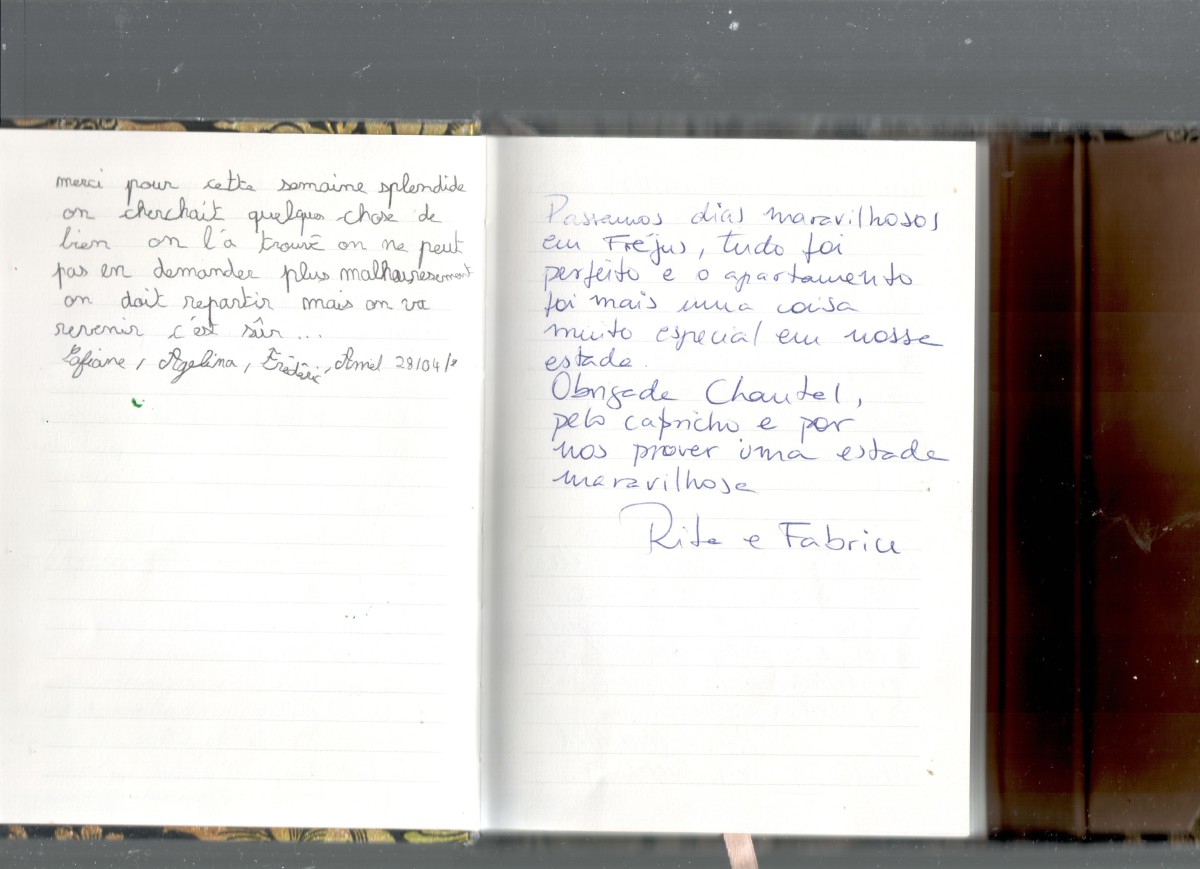 merci pour cette semaine splendide
on cherchait quelque chose de
bien on l'a trouvé on ne peut
pas en demander plus malheuresement
on doit repartir mais on va
revenir c'est sûr...
, Agelina, Frédéric, Amel 28/04/
Passamos dias maravilhosos
em Fréjus, tudo foi
perfeito e o apartamento
foi mais uma coisa
muito especial em nossa
estada.
Obrigada Chantel,
pelo capricho e por
nos prover uma estada
maravilhosa
Rita e